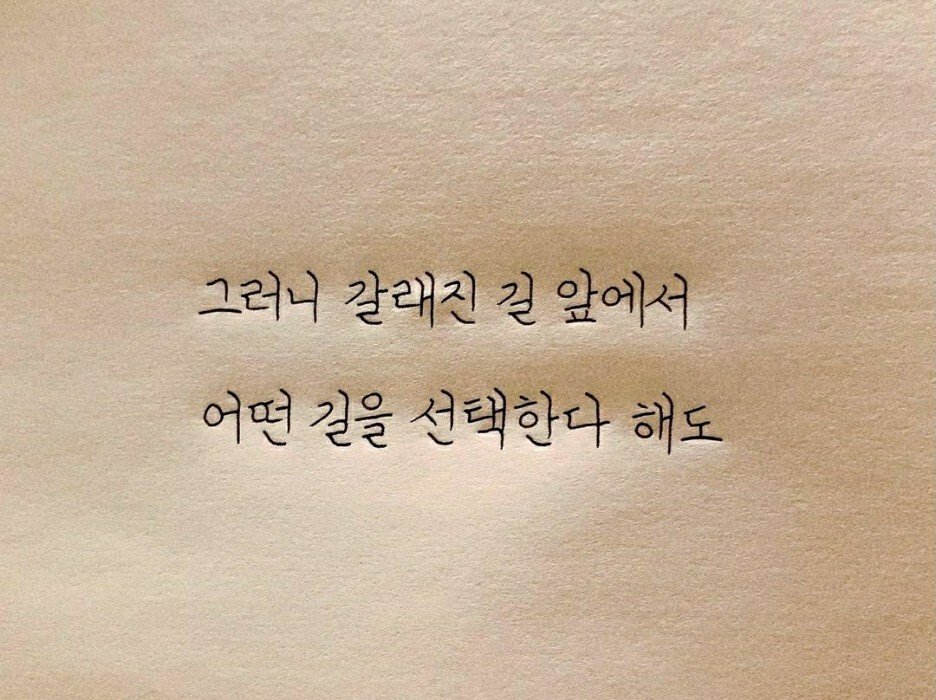 그러니 갈래진 길 앞에서
어떤 길을 선택한다 해도